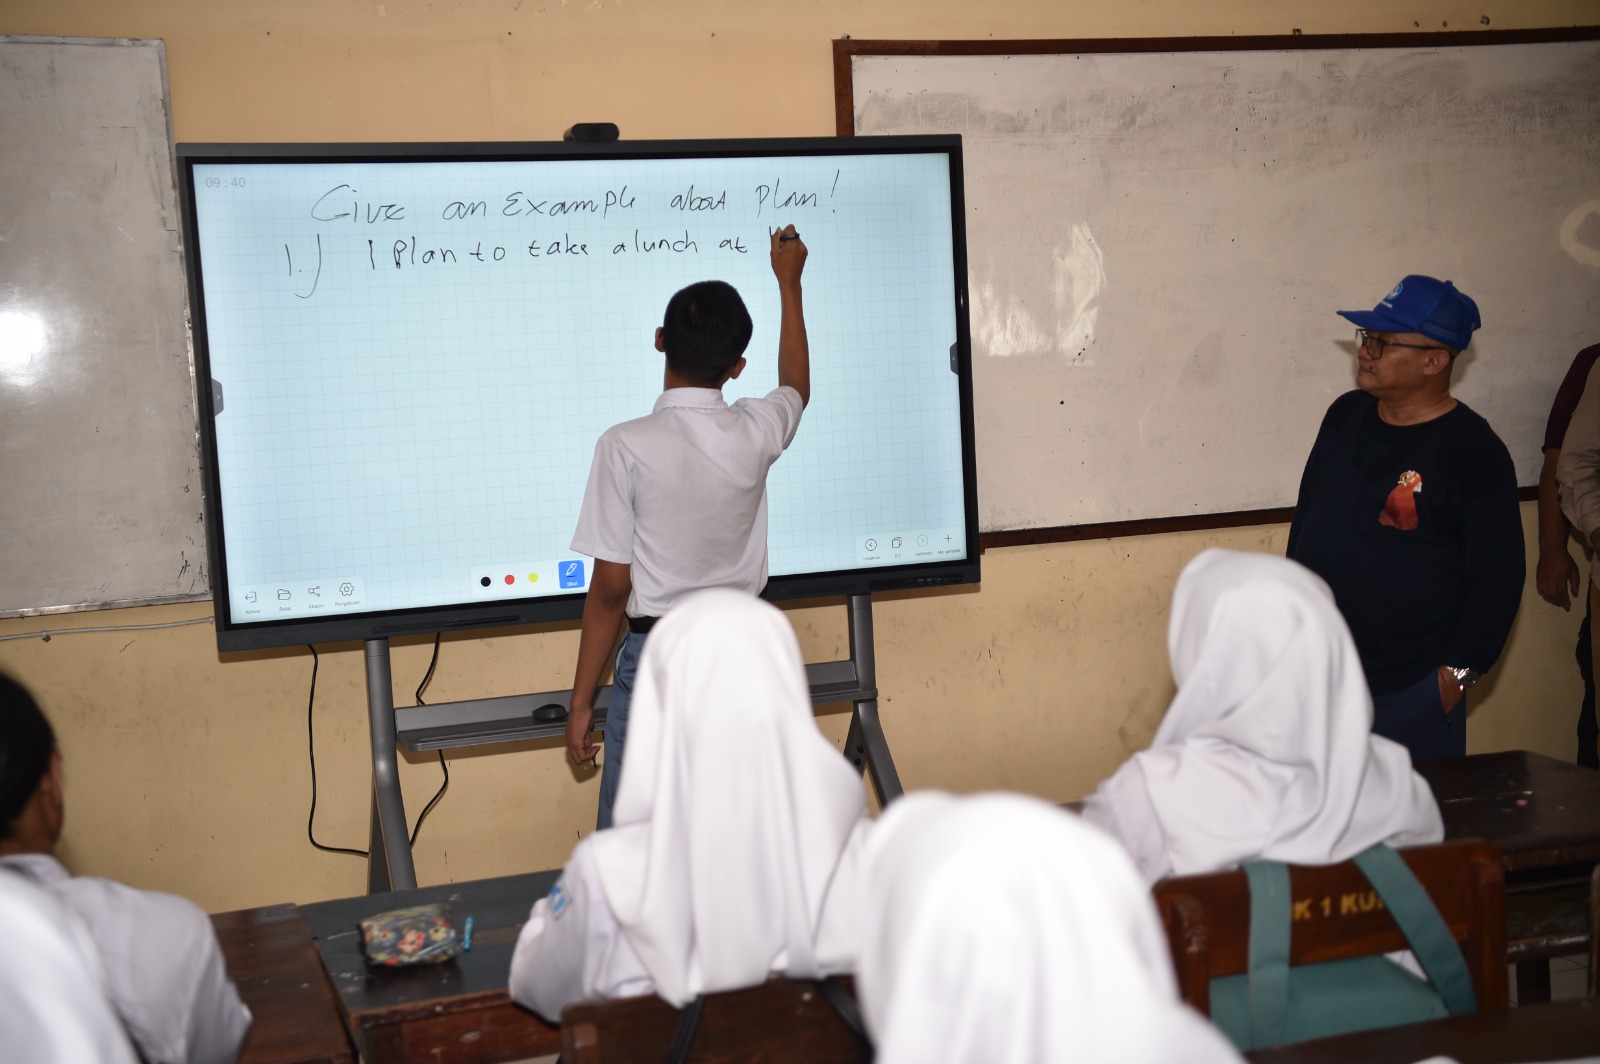 09:40
Give an Example about Plan!
1.) I Plan to take a lunch at
Keluar Buka Ekspor Pengaturan
K 1 KU